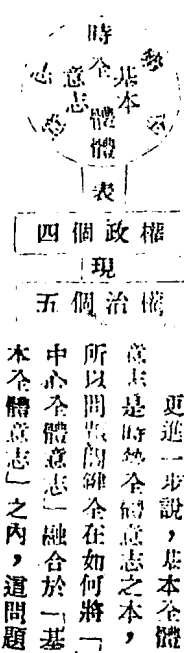 時
全
意志
基本
體
體
表
四個政權
現
五個治權
更進一步說，基本全體
意志是時勢全體意志之本，
所以問題關鍵全在如何將「
中心全體意志」融合於「基
本全體意志」之內，這問題